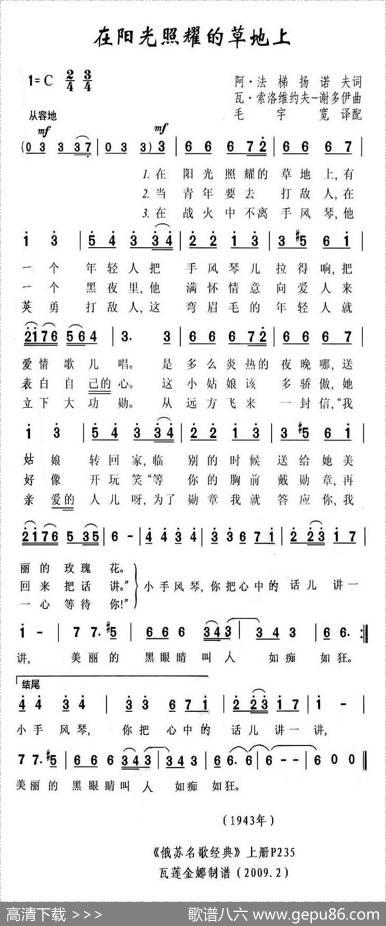 在阳光照耀的草地上
1=C 2/4 3/4
阿·法梯扬诺夫词
瓦·索洛维约夫-谢多伊曲
毛宇宽译配
从容地
mf mf
(0 3 3 37 | 0 3 3) 3 | 6 6 6 72 | 6 6 7 6 |
1.在 阳光照耀的草地上,有
2.当 青年要去打敌人,在
3.在 战火中不离手风琴,他
1 3 | 5 4 3 34 | 2 2 1 3 | 3 #5 6 1 |
一个年轻人把手风琴儿拉得响,把
一个黑夜里,他满怀情意向爱人来
英勇打敌人,这弯眉毛的年轻人就
2176 564 | 3. 3 | 6 6 6 72 | 6 6 7 6 |
爱情歌儿唱。是多么炎热的夜晚哪,送
表白自己的心。这小姑娘该多骄傲,她
立下大功勋。从远方飞来一封信,“我
1 3 | 5 4 3 34 | 2 2 1 3 | 3 #5 6 1 |
姑娘转回家,临别的时候送给她美
好像开玩笑“等你的胸前戴勋章,再
亲爱的人儿呀,为了勋章我就答应你,我
2176 535 | 6 - | 4 4 3 4 | 3 3 6 7 1 | 2 23 1 7 |
丽的玫瑰花。
回来把话讲。” 小手风琴,你把心中的话儿讲一
一心等待你!”
1 - | 7 7. #5 | 6 6 6 343 | 343 3 | 6 6 :||
讲,美丽的黑眼睛叫人如痴如狂。
结尾
4 4 3 4 | 3 3 6 7 1 | 2 23 2 1 7 | 1 - |
小手风琴,你把心中的话儿讲一讲,
7 7. #5 | 6 6 6 343 | 343 3 | 6 6 - | 6 - - | 6 0 0 ||
美丽的黑眼睛叫人如痴如狂。
(1943年)
《俄苏名歌经典》上册P235
瓦莲金娜制谱(2009.2)
高清下载 >>> 歌谱八六 www.gepu86.com